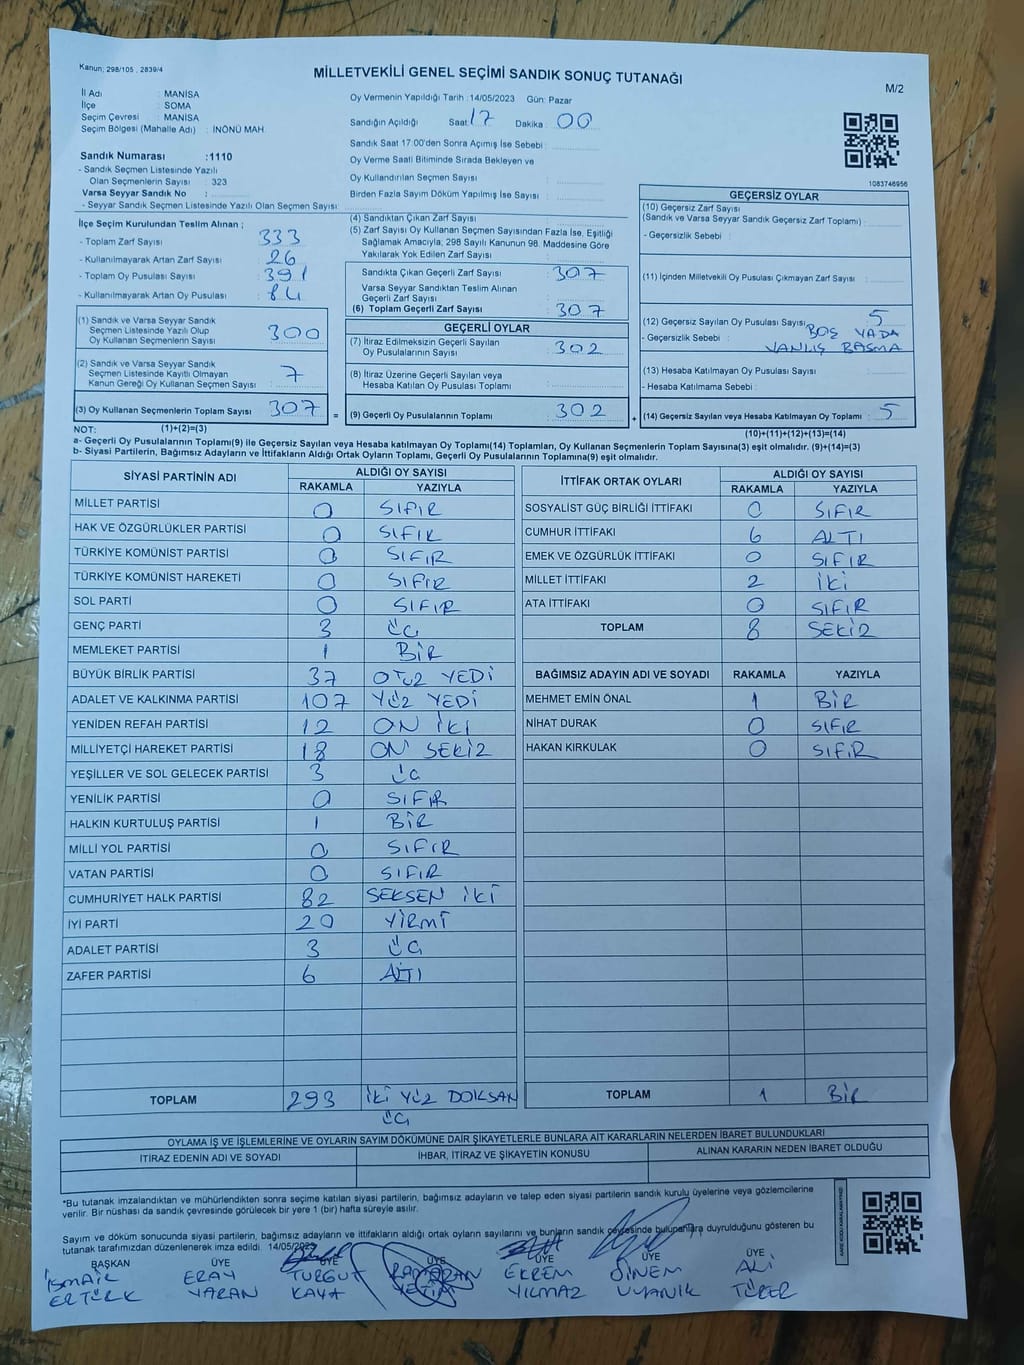 Kanun; 298/105 , 2839/4
MİLLETVEKİLİ GENEL SEÇİMİ SANDIK SONUÇ TUTANAĞI
M/2
İl Adı : MANİSA
İlçe : SOMA
Seçim Çevresi : MANİSA
Seçim Bölgesi (Mahalle Adı) : İNÖNÜ MAH.
Sandık Numarası :1110
- Sandık Seçmen Listesinde Yazılı
Olan Seçmenlerin Sayısı : 323
Varsa Seyyar Sandık No :
- Seyyar Sandık Seçmen Listesinde Yazılı Olan Seçmen Sayısı:
Oy Vermenin Yapıldığı Tarih :14/05/2023 Gün: Pazar
Sandığın Açıldığı Saat 17 Dakika : 00
Sandık Saat 17:00'den Sonra Açımış İse Sebebi :
Oy Verme Saati Bitiminde Sırada Bekleyen ve
Oy Kullandırılan Seçmen Sayısı :
Birden Fazla Sayım Döküm Yapılmış İse Sayısı :
1083746956
İlçe Seçim Kurulundan Teslim Alınan ;
- Toplam Zarf Sayısı : 333
- Kullanılmayarak Artan Zarf Sayısı : 26
- Toplam Oy Pusulası Sayısı : 391
- Kullanılmayarak Artan Oy Pusulası : 84
(1) Sandık ve Varsa Seyyar Sandık
Seçmen Listesinde Yazılı Olup
Oy Kullanan Seçmenlerin Sayısı : 300
(2) Sandık ve Varsa Seyyar Sandık
Seçmen Listesinde Kayıtlı Olmayan
Kanun Gereği Oy Kullanan Seçmen Sayısı : 7
(3) Oy Kullanan Seçmenlerin Toplam Sayısı : 307 =
(4) Sandıktan Çıkan Zarf Sayısı :
(5) Zarf Sayısı Oy Kullanan Seçmen Sayısından Fazla İse, Eşitliği
Sağlamak Amacıyla; 298 Sayılı Kanunun 98. Maddesine Göre
Yakılarak Yok Edilen Zarf Sayısı :
Sandıkta Çıkan Geçerli Zarf Sayısı : 307
Varsa Seyyar Sandıktan Teslim Alınan
Geçerli Zarf Sayısı :
(6) Toplam Geçerli Zarf Sayısı : 307
GEÇERLİ OYLAR
(7) İtiraz Edilmeksizin Geçerli Sayılan
Oy Pusulalarının Sayısı : 302
(8) İtiraz Üzerine Geçerli Sayılan veya
Hesaba Katılan Oy Pusulası Toplamı :
(9) Geçerli Oy Pusulalarının Toplamı : 302 +
GEÇERSİZ OYLAR
(10) Geçersiz Zarf Sayısı
(Sandık ve Varsa Seyyar Sandık Geçersiz Zarf Toplamı) :
- Geçersizlik Sebebi :
(11) İçinden Milletvekili Oy Pusulası Çıkmayan Zarf Sayısı :
(12) Geçersiz Sayılan Oy Pusulası Sayısı : 5
- Geçersizlik Sebebi : BOŞ YADA
YANLIŞ BASMA
(13) Hesaba Katılmayan Oy Pusulası Sayısı :
- Hesaba Katılmama Sebebi :
(14) Geçersiz Sayılan veya Hesaba Katılmayan Oy Toplamı : 5
NOT: (1)+(2)=(3)
(10)+(11)+(12)+(13)=(14)
a- Geçerli Oy Pusulalarının Toplamı(9) ile Geçersiz Sayılan veya Hesaba katılmayan Oy Toplamı(14) Toplamları, Oy Kullanan Seçmenlerin Toplam Sayısına(3) eşit olmalıdır. (9)+(14)=(3)
b- Siyasi Partilerin, Bağımsız Adayların ve İttifakların Aldığı Ortak Oyların Toplamı, Geçerli Oy Pusulalarının Toplamına(9) eşit olmalıdır.
SİYASİ PARTİNİN ADI ALDIĞI OY SAYISI
RAKAMLA YAZIYLA
MİLLET PARTİSİ 0 SIFIR
HAK VE ÖZGÜRLÜKLER PARTİSİ 0 SIFIR
TÜRKİYE KOMÜNİST PARTİSİ 0 SIFIR
TÜRKİYE KOMÜNİST HAREKETİ 0 SIFIR
SOL PARTİ 0 SIFIR
GENÇ PARTİ 3 ÜÇ
MEMLEKET PARTİSİ 1 BİR
BÜYÜK BİRLİK PARTİSİ 37 OTUZ YEDİ
ADALET VE KALKINMA PARTİSİ 107 YÜZ YEDİ
YENİDEN REFAH PARTİSİ 12 ON İKİ
MİLLİYETÇİ HAREKET PARTİSİ 18 ON SEKİZ
YEŞİLLER VE SOL GELECEK PARTİSİ 3 ÜÇ
YENİLİK PARTİSİ 0 SIFIR
HALKIN KURTULUŞ PARTİSİ 1 BİR
MİLLİ YOL PARTİSİ 0 SIFIR
VATAN PARTİSİ 0 SIFIR
CUMHURİYET HALK PARTİSİ 82 SEKSEN İKİ
İYİ PARTİ 20 YİRMİ
ADALET PARTİSİ 3 ÜÇ
ZAFER PARTİSİ 6 ALTI
TOPLAM 293 İKİ YÜZ DOKSAN
ÜÇ
İTTİFAK ORTAK OYLARI ALDIĞI OY SAYISI
RAKAMLA YAZIYLA
SOSYALİST GÜÇ BİRLİĞİ İTTİFAKI 0 SIFIR
CUMHUR İTTİFAKI 6 ALTI
EMEK VE ÖZGÜRLÜK İTTİFAKI 0 SIFIR
MİLLET İTTİFAKI 2 İKİ
ATA İTTİFAKI 0 SIFIR
TOPLAM 8 SEKİZ
BAĞIMSIZ ADAYIN ADI VE SOYADI RAKAMLA YAZIYLA
MEHMET EMİN ÖNAL 1 BİR
NİHAT DURAK 0 SIFIR
HAKAN KIRKULAK 0 SIFIR
TOPLAM 1 BİR
OYLAMA İŞ VE İŞLEMLERİNE VE OYLARIN SAYIM DÖKÜMÜNE DAİR ŞİKAYETLERLE BUNLARA AİT KARARLARIN NELERDEN İBARET BULUNDUKLARI
İTİRAZ EDENİN ADI VE SOYADI İHBAR, İTİRAZ VE ŞİKAYETİN KONUSU ALINAN KARARIN NEDEN İBARET OLDUĞU
*Bu tutanak imzalandıktan ve mühürlendikten sonra seçime katılan siyasi partilerin, bağımsız adayların ve talep eden siyasi partilerin sandık kurulu üyelerine veya gözlemcilerine
verilir. Bir nüshası da sandık çevresinde görülecek bir yere 1 (bir) hafta süreyle asılır.
Sayım ve döküm sonucunda siyasi partilerin, bağımsız adayların ve ittifakların aldığı ortak oyların sayılarını ve bunların sandık çevresinde bulunanlara duyrulduğunu gösteren bu
tutanak tarafımızdan düzenlenerek imza edildi. 14/05/2023
BAŞKAN ÜYE ÜYE ÜYE ÜYE ÜYE ÜYE
İSMAİL ERAY TURGUT RAMAZAN EKREM DİNEM ALİ
ERTÜRK YARAN KAYA YETİM YILMAZ UYANIK TÜRER